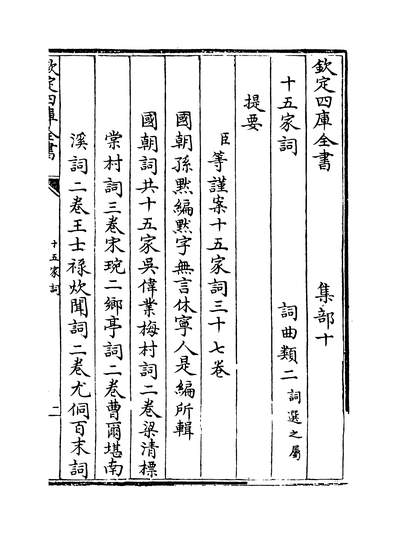 欽定四庫全書　集部十
十五家詞　詞曲類二詞選之屬
提要
臣等謹案十五家詞三十七卷
國朝孫黙編黙字無言休寧人是編所輯
國朝詞共十五家吳偉業梅村詞二卷梁清標
棠村詞三卷宋琬二鄉亭詞二卷曹爾堪南
溪詞二卷王士祿炊聞詞二卷尤侗百末詞
欽定四庫全書
十五家詞
二